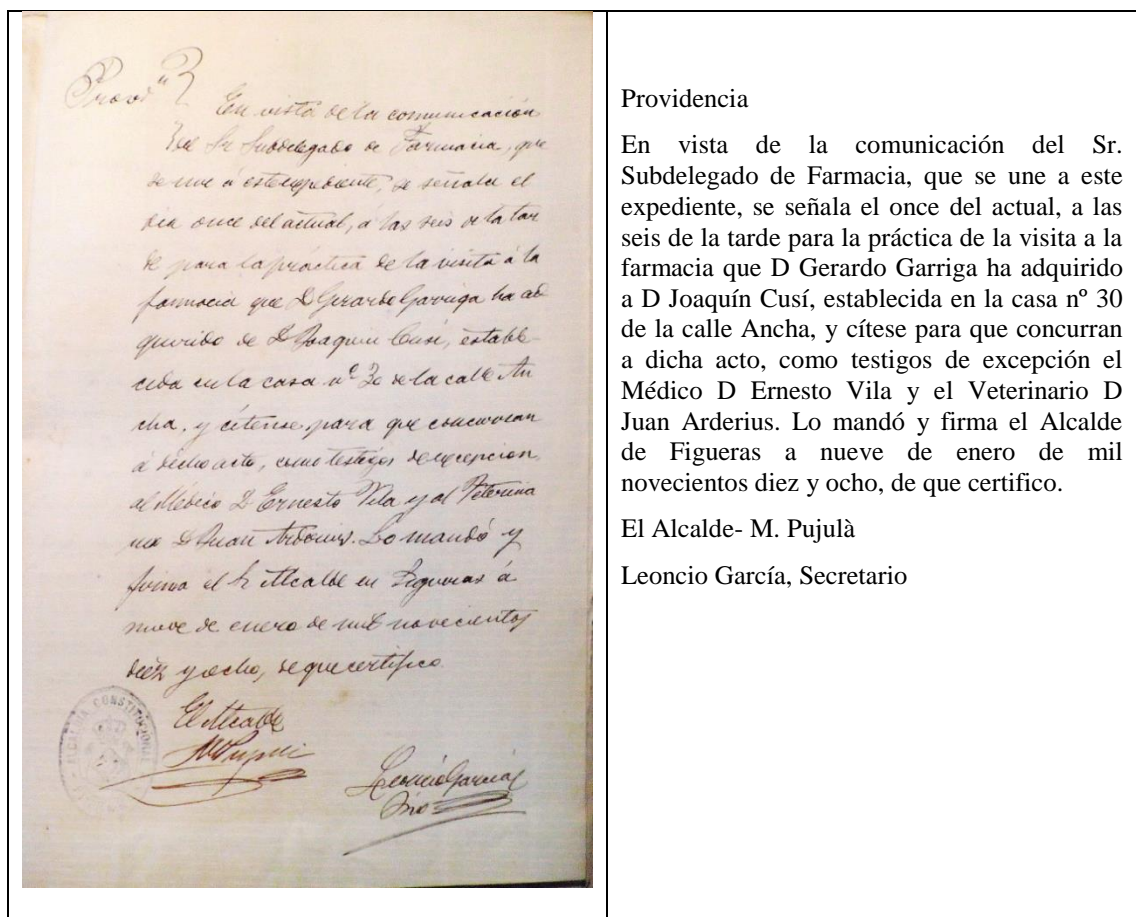 Provª
En vista de la comunicación
del Sr Subdelegado de Farmacia, que
se une á este expediente, se señala el
dia once del actual, á las seis de la tar
de para la práctica de la visita á la
farmacia que D Gerardo Garriga ha ad
quirido de D Joaquin Cusí, estable-
cida en la casa nº 30 de la calle An
cha, y cítense para que concurran
á dicho acto, como testigos de excepcion
al Médico D Ernesto Vila y al Veterina
rio D Juan Arderius. Lo mandó y
firma el Sr Alcalde en Figueras á
nueve de enero de mil novecientos
diez y ocho, de que certifico.
ALCALDIA CONSTITUCIONAL
El Alcalde
M Pujulà
Leoncio García
Srio
Providencia
En vista de la comunicación del Sr.
Subdelegado de Farmacia, que se une a este
expediente, se señala el once del actual, a las
seis de la tarde para la práctica de la visita a la
farmacia que D Gerardo Garriga ha adquirido
a D Joaquín Cusí, establecida en la casa nº 30
de la calle Ancha, y cítese para que concurran
a dicha acto, como testigos de excepción el
Médico D Ernesto Vila y el Veterinario D
Juan Arderius. Lo mandó y firma el Alcalde
de Figueras a nueve de enero de mil
novecientos diez y ocho, de que certifico.
El Alcalde- M. Pujulà
Leoncio García, Secretario